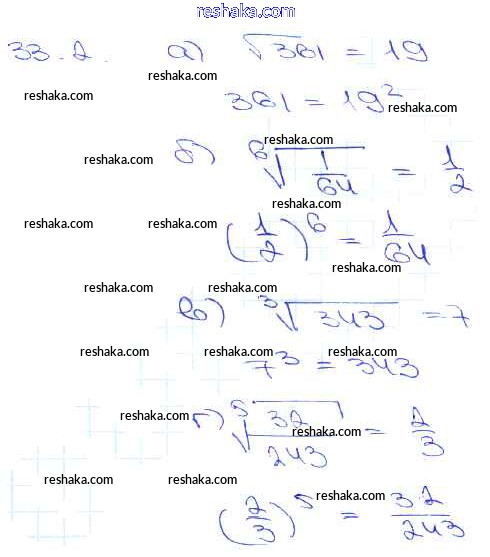 reshaka.com
33.2. а) √361 = 19
reshaka.com
reshaka.com
361 = 19²
reshaka.com
reshaka.com
reshaka.com
б) ⁶√(1/64) = 1/2
reshaka.com reshaka.com
(1/2)⁶ = 1/64
reshaka.com
reshaka.com reshaka.com
в) ³√343 = 7
reshaka.com reshaka.com reshaka.com
7³ = 343
reshaka.com
г) ⁵√(32/243) = 2/3
reshaka.com
reshaka.com reshaka.com
reshaka.com
(2/3)⁵ = 32/243